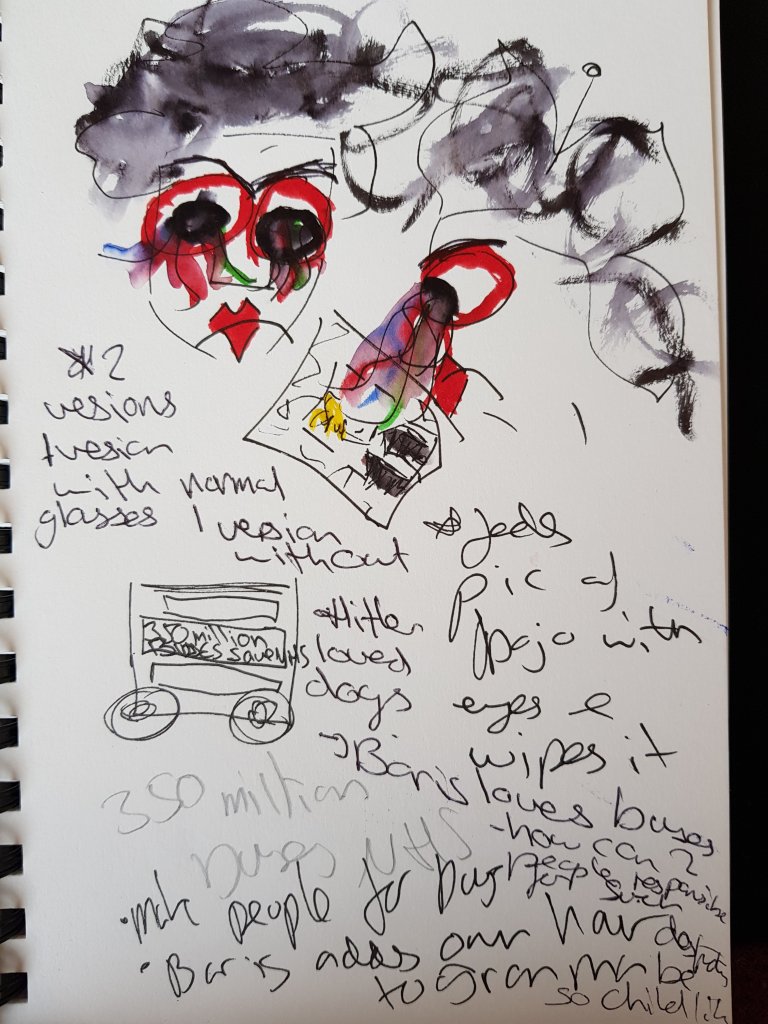 * 2
vesions
1 vesion
with normal
glasses 1 version
without
* Jeds
pic of
with
eyes e
wipes it
350 million
SAVE NHS
* Hitler
loved
dogs
→ Boris loves buses
- how can 2
people responsible
for such
350 million
buses NHS
• make people for bus
• Boris adds own hair
to gran
be
so child like